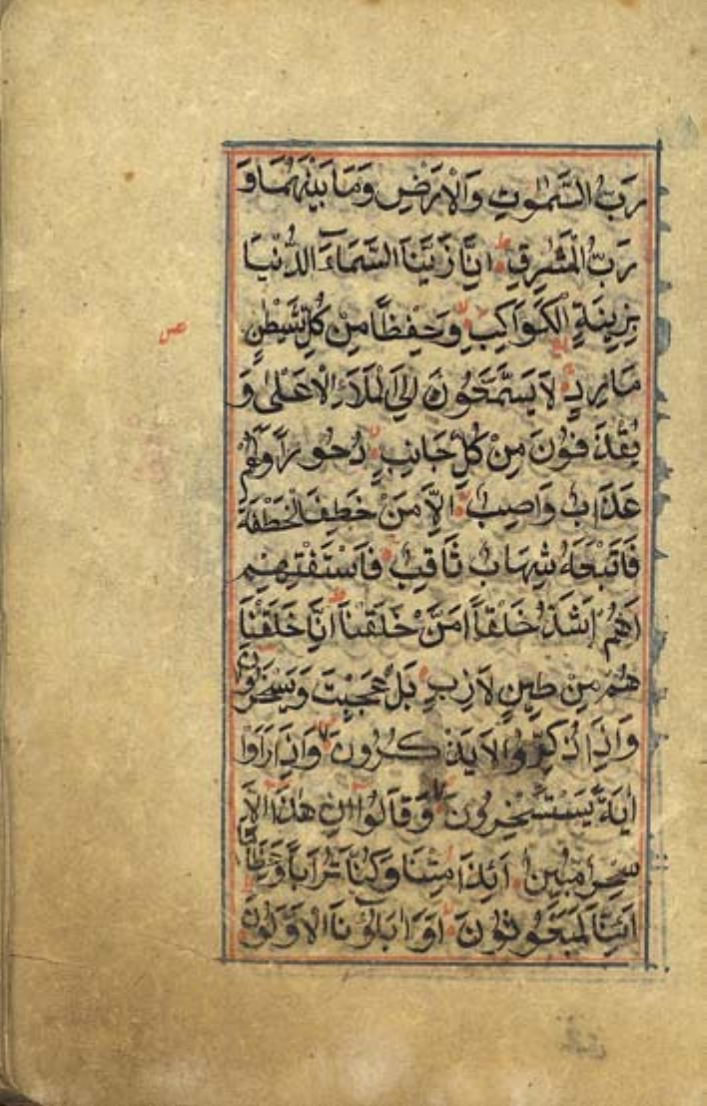 رَبُّ السَّمٰوٰتِ وَالْاَرْضِ وَمَا بَيْنَهُمَا وَ
رَبُّ الْمَشٰرِقِ اِنَّا زَيَّنَّا السَّمَآءَ الدُّنْيَا
بِزِينَةٍ الْكَوَاكِبِ وَحِفْظًا مِنْ كُلِّ شَيْطٰنٍ
مَارِدٍ لَا يَسَّمَّعُونَ اِلَى الْمَلَاِ الْاَعْلٰى وَ
يُقْذَفُونَ مِنْ كُلِّ جَانِبٍ دُحُورًا وَلَهُمْ
عَذَابٌ وَاصِبٌ اِلَّا مَنْ خَطِفَ الْخَطْفَةَ
فَاَتْبَعَهُ شِهَابٌ ثَاقِبٌ فَاسْتَفْتِهِمْ
اَهُمْ اَشَدُّ خَلْقًا اَمْ مَنْ خَلَقْنَا اِنَّا خَلَقْنَا
هُمْ مِنْ طِينٍ لَازِبٍ بَلْ عَجِبْتَ وَيَسْخَرُونَ
وَاِذَا ذُكِّرُوا لَا يَذْكُرُونَ وَاِذَا رَاَوْا
اٰيَةً يَسْتَسْخِرُونَ وَقَالُوا اِنْ هٰذَا اِلَّا
سِحْرٌ مُبِينٌ ءَاِذَا مِتْنَا وَكُنَّا تُرَابًا وَعِظَامًا
اَئِنَّا لَمَبْعُوثُونَ اَوَاٰبَاؤُنَا الْاَوَّلُونَ